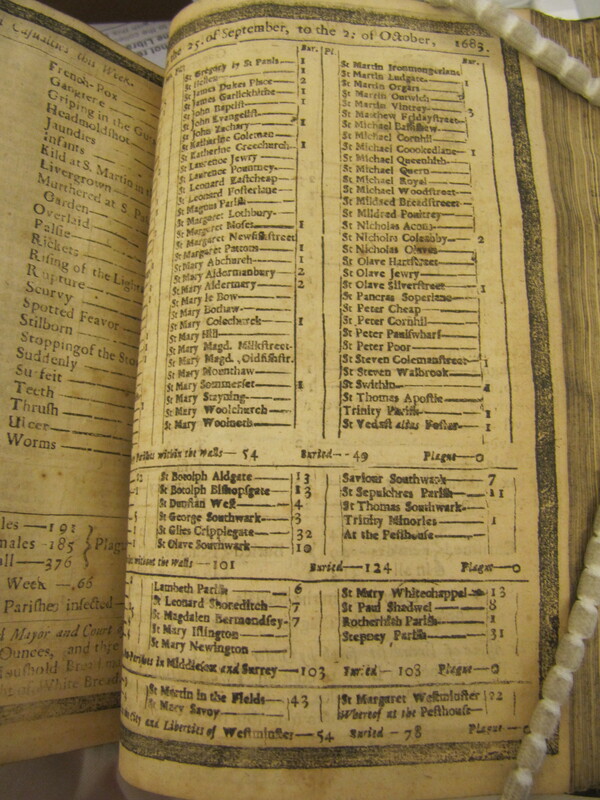 Casualties this Week.
French-Pox
Gangrene
Griping in the Guts
Headmoldshot
Jaundies
Infants
Kild at S. Martin in the
Livergrown
Murthered at S. Pa
Garden
Overlaid
Palsie
Rickets
Rising of the Lights
Rupture
Scurvy
Spotted Feavor
Stilborn
Stopping of the Sto
Suddenly
Surfeit
Teeth
Thrush
Ulcer
Worms
les — 191
males - 185
all — 376
Plag
Week — 66
Parishes infected
Mayor and Court
Ounces, and thre
Houshold Bread
White Bread
the 25. of September, to the 2: of October, 1683.
Bur.
St Gregory by St Pauls — 1
St Hellen — 1
St James Dukes Place — 2
St James Garlickhithe — 1
St John Baptist — 1
St John Evangelist
St John Zachary — 1
St Katharine Coleman
St Katherine Creechurch — 1
St Laurence Jewry
St Laurence Pountney
St Leonard Eastcheap
St Leonard Fosterlane
St Magnus Parish
St Margaret Lothbury
St Margaret Moses — 1
St Margaret Newfishstreet
St Margaret Pattons — 1
St Mary Abchurch — 1
St Mary Aldermanbury — 2
St Mary Aldermary — 2
St Mary le Bow
St Mary Bothaw
St Mary Colechurch — 1
St Mary Hill
St Mary Magd. Milkstreet
St Mary Magd. Oldfishstr.
St Mary Mounthaw
St Mary Sommerset — 1
St Mary Stayning
St Mary Woolchurch
St Mary Woolnoth
Bur. Pl.
St Martin Ironmongerlane
St Martin Ludgate — 1
St Martin Orgars
St Martin Outwich
St Martin Vintrey — 3
St Matthew Fridaystreet
St Michael Bassishaw
St Michael Cornhil
St Michael Crookedlane — 1
St Michael Queenhith
St Michael Quern
St Michael Royal
St Michael Woodstreet
St Mildred Breadstreet
St Mildred Poultrey
St Nicholas Acons
St Nicholas Coleabby — 2
St Nicholas Olaves
St Olave Hartstreet
St Olave Jewry
St Olave Silverstreet — 1
St Pancras Soperlane
St Peter Cheap
St Peter Cornhil
St Peter Paulswharf
St Peter Poor
St Steven Colemanstreet — 1
St Steven Walbrook
St Swithin
St Thomas Apostle
Trinity Parish — 1
St Vedast alias Foster — 1
Parishes within the Walls — 54 Buried — 49 Plague — 0
St Botolph Aldgate — 13
St Botolph Bishopsgate — 13
St Dunstan West — 4
St George Southwark — 3
St Giles Cripplegate — 32
St Olave Southwark — 10
Saviour Southwark — 7
St Sepulchres Parish — 11
St Thomas Southwark
Trinity Minories — 1
At the Pesthouse
without the Walls — 101 Buried — 124 Plague — 0
Lambeth Parish — 6
St Leonard Shoreditch — 7
St Magdalen Bermondsey — 7
St Mary Islington
St Mary Newington
St Mary Whitechappel — 13
St Paul Shadwel — 8
Rotherhith Parish — 1
Stepney Parish — 31
Parishes in Middlesex and Surrey — 103 Buried — 103 Plague — 0
St Martin in the Fields — 43
St Mary Savoy
St Margaret Westminster 22
Whereof at the Pesthouse
City and Liberties of Westminster — 54 Buried — 78 Plague — 0